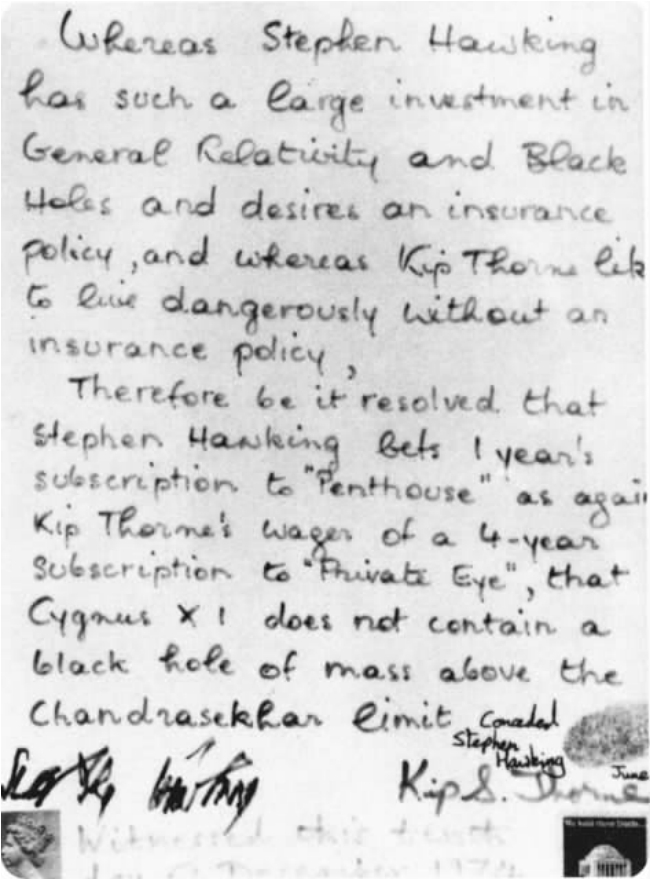 Whereas Stephen Hawking
has such a large investment in
General Relativity and Black
Holes and desires an insurance
policy, and whereas Kip Thorne lik
to live dangerously without an
insurance policy,
Therefore be it resolved that
Stephen Hawking bets 1 year's
subscription to "Penthouse" as agai
Kip Thorne's wager of a 4-year
subscription to "Private Eye", that
Cygnus X 1 does not contain a
black hole of mass above the
Chandrasekhar limit
Conceded
Stephen
Hawking
June
Kip S. Thorne
Witnessed this tenth
December 1974